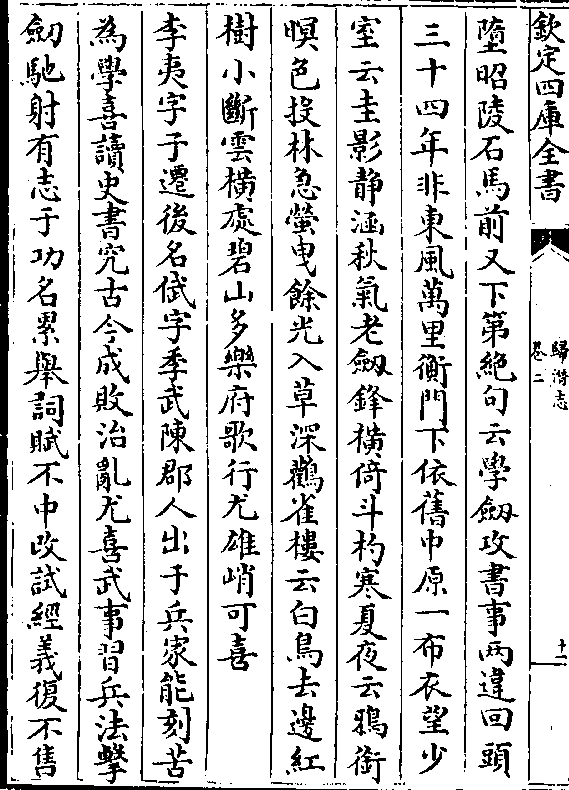 欽定四庫全書
歸潛志
卷二
十一
墮昭陵石馬前又下第絶句云學劔攻書事兩違回頭
三十四年非東風萬里衡門下依舊中原一布衣望少
室云圭影静涵秋氣老劔鋒横倚斗杓寒夏夜云鴉銜
暝色投林急螢曳餘光入草深鸛雀樓云白鳥去邊紅
樹小斷雲横處碧山多樂府歌行尤雄峭可喜
李夷字子遷後名倵字季武陳郡人出于兵家能刻苦
為學喜讀史書究古今成敗治亂尤喜武事習兵法擊
劔馳射有志于功名累舉詞賦不中改試經義復不售